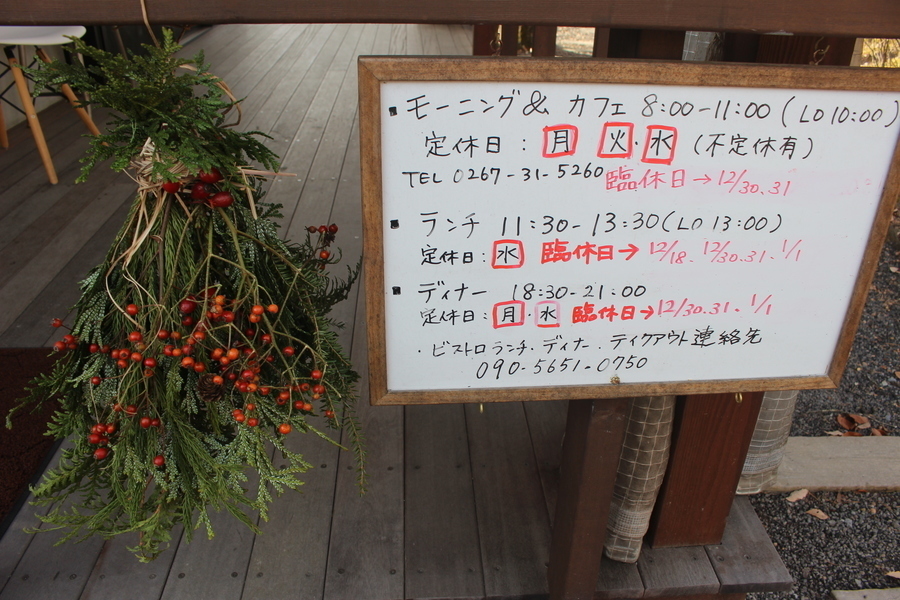 ▪モーニング& カフェ 8:00-11:00 (LO 10:00)
定休日 : 月 火・水 (不定休有)
TEL 0267-31-5260 臨休日→12/30.31
▪ランチ 11:30-13:30(LO 13:00)
定休日:水 臨休日→ 12/18. 12/30.31. 1/1
▪ディナー 18:30-21:00
定休日:月・水 臨休日→12/30.31. 1/1
・ビストロランチ・ディナー・テイクアウト連絡先
090-5651-0750